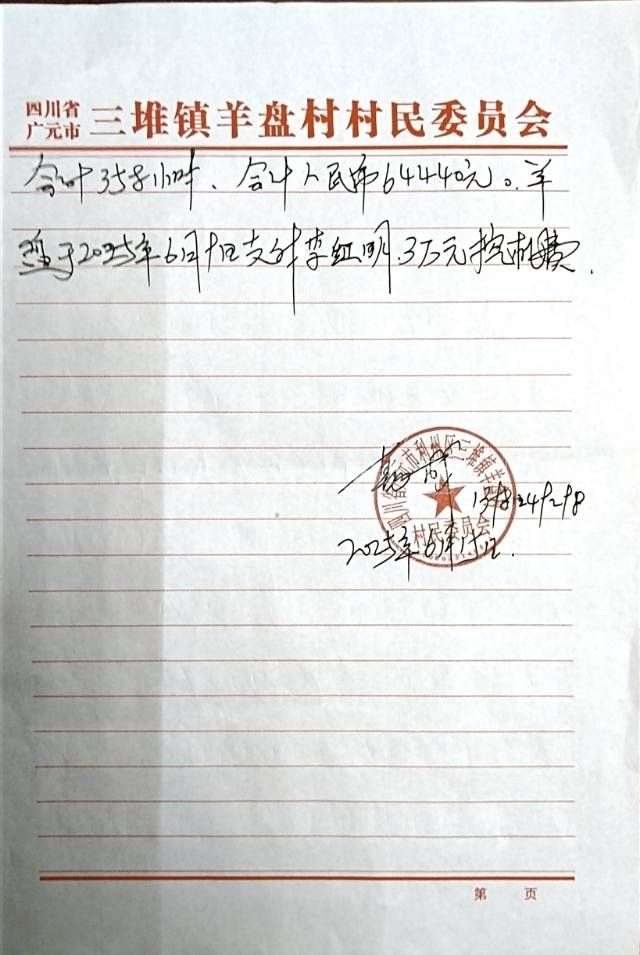 四川省
广元市
三堆镇羊盘村村民委员会
合计358小时、合计人民币64440元。羊
于2025年6月10日支付李红明3万元挖机费.
四川省广元市利州区三堆镇羊盘村
村民委员会
2025年6月10日.
第 页